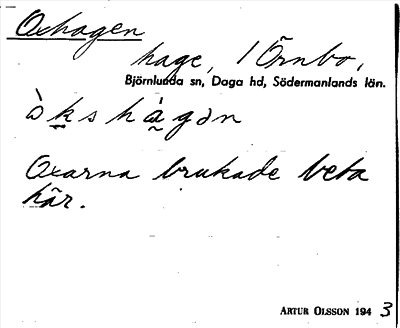 Oxhagen
hage, / Örnbo,
Björnlunda sn, Daga hd, Södermanlands län.
ò k s h à g ə n
Oxarna brukade beta
här.
ARTUR OLSSON 194 3